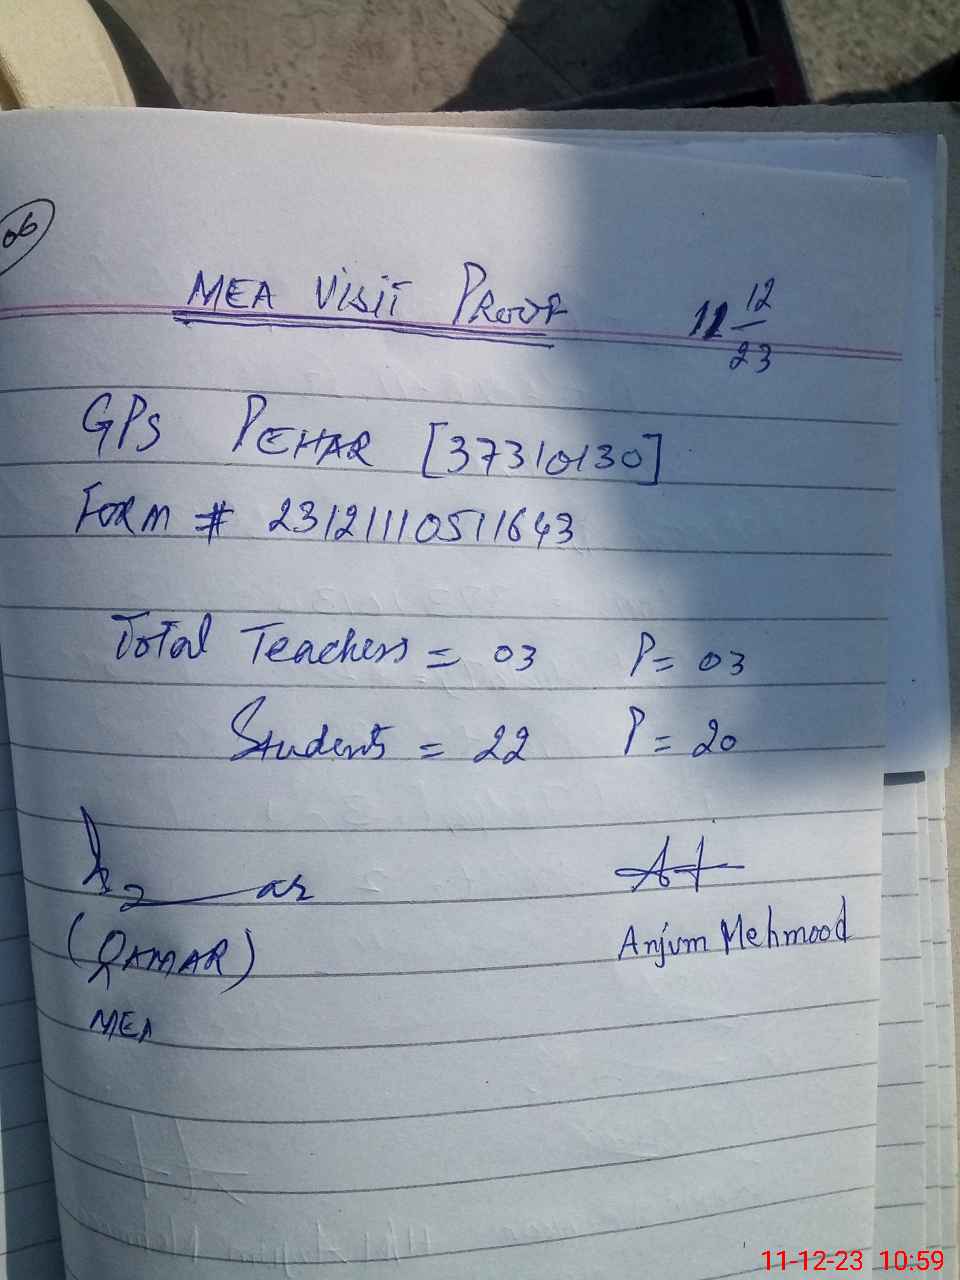 06
MEA Visit Proof 11 12/23
GPS PEHAR [37310130]
Form # 23121110511643
Total Teachers = 03 P = 03
Students = 22 P = 20
(QAMAR)
Anjum Mehmood
MEA
11-12-23 10:59